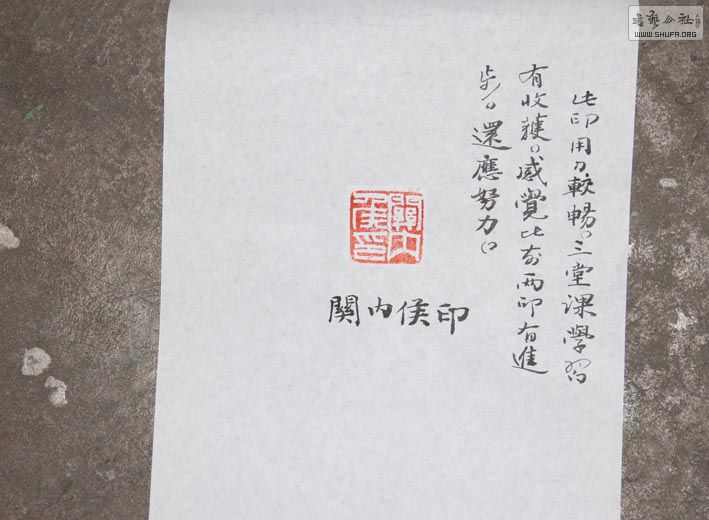 此印用刀較暢。三堂课學習
有收獲。感覺比前兩印有進
步。還應努力。
關内侯印
關内侯印
書藝公社
WWW.SHUFA.ORG